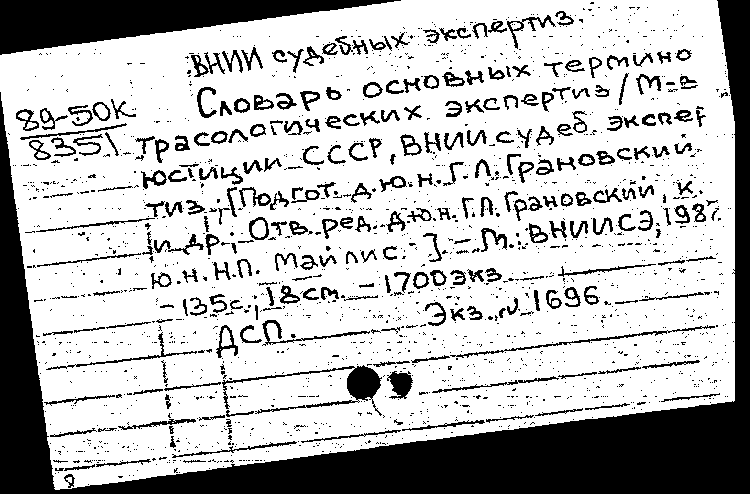 ВНИИ судебных экспертиз.
89-50К
8351
Словарь основных термино
трасологических экспертиз / М-в
юстиции СССР, ВНИИ судеб. экспер
тиз ; [Подгот. д.ю.н. Г.Л. Грановский
и др.; Отв. ред. д.ю.н. Г.Л. Грановский, к.
ю.н. Н.П. Майлис. ]. – М.: ВНИИСЭ, 1987
– 135с.; 18см. – 1700экз.
ДСП. Экз. № 1696.